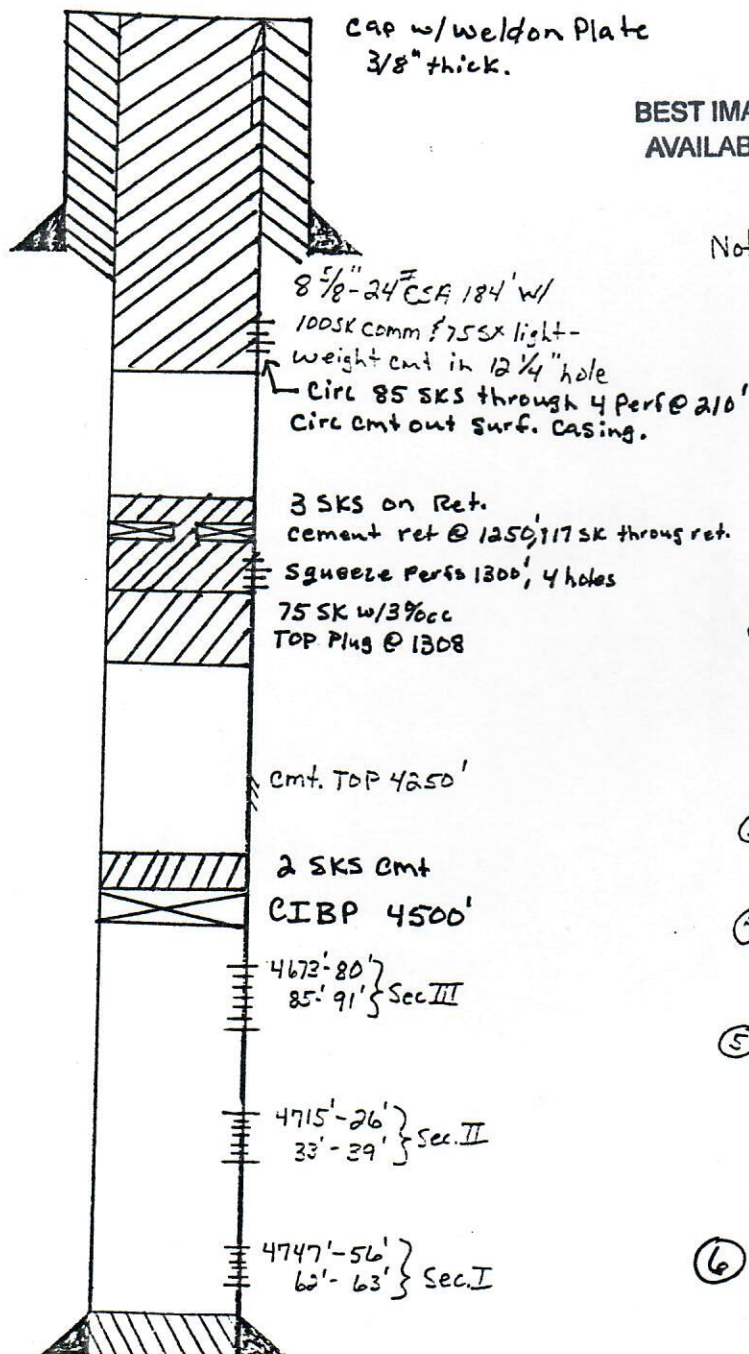 cap w/weldon Plate
3/8" thick.
BEST IMA
AVAILAB
Not
8 5/8"-24# CSA 184' w/
100SK comm & 75SX light-
weight cmt in 12 1/4" hole
Circ 85 SKS through 4 Perf @ 210'
Circ cmt out surf. casing.
3 SKS on Ret.
cement ret @ 1250', 117 SK throug ret.
Squeeze Perfs 1300', 4 holes
75 SK w/3%cc
TOP Plug @ 1308
cmt. TOP 4250'
2 SKS cmt
CIBP 4500'
4673'-80' } Sec III
85'-91'
4715'-26' } Sec. II
33'-39'
5
4747'-56' } Sec. I
62'-63'
6